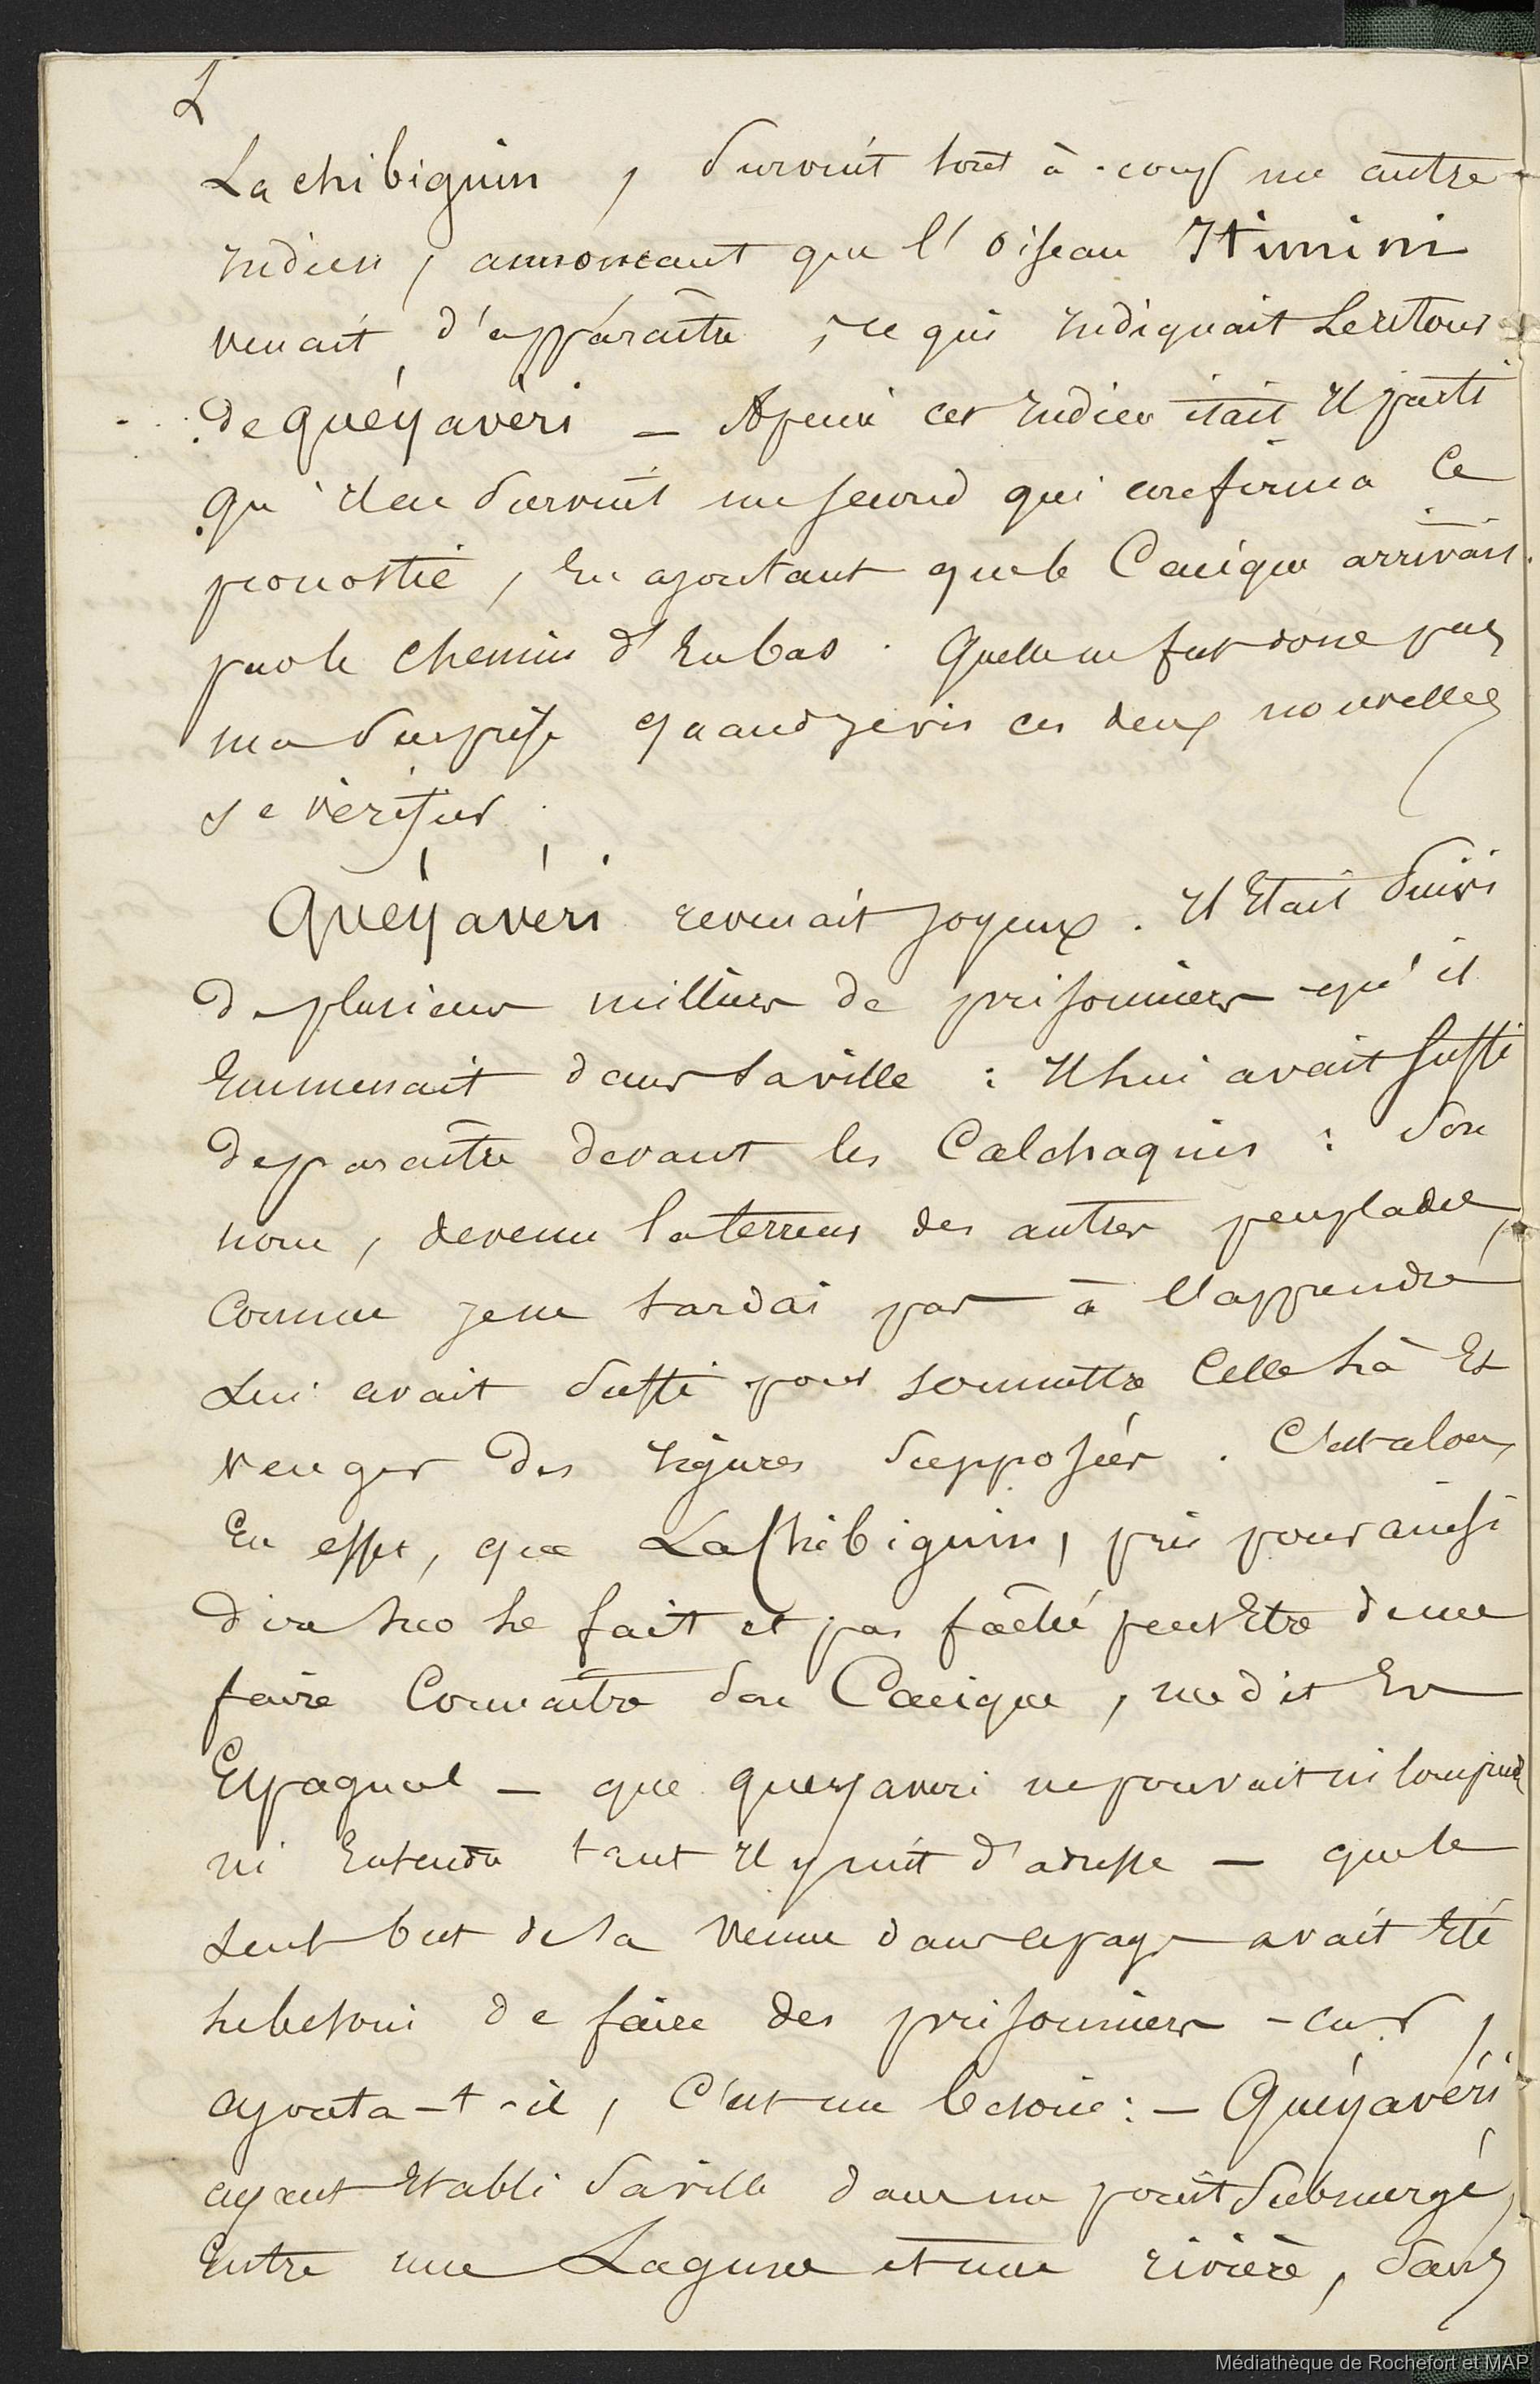 L
La chibiguin, survint tout à coup un autre
Indien, annoncant que l'oiseau Itimini
venait d'apparaître, ce qui Indiquait Le retour
de quéyavéri — A peine cet Indien était Il parti
qu'Il en survint un second qui confirma Ce
pronostic, En ajoutant que le Cacique arrivait
par le chemin d'En bas. Quelle ne fut donc pas
ma surprise quand je vis ces deux nouvelles
se vérifier.
Quéyavéri revenait joyeux. Il Etait suivi
de plusieurs milliers de prisonniers qu'il
Emmenait dans sa ville : Il lui avait suffi
de paraître devant les Calchaquis : son
nom, devenu la terreur des autres peuplades,
Comme je ne tardai pas à l'apprendre,
Lui avait suffi pour soumettre Celle là Et
venger des Injures supposées. C'est alors,
En effet, que La Chibiguin, pris pour ainsi
dire sur le fait et pas fâché peut Etre de me
faire Connaître son Cacique, me dit En
Espagnol — que queyaveri ne pouvait ni comprend
ni Entendre tant Il y mit d'adresse — que le
seul but de sa venue dans ce pays avait Eté
le besoin de faire des prisonniers - car,
ajouta-t-il, C'est un besoin : — Quéyavéri
ayant Etabli sa ville dans un point submergé,
Entre une Lagune et une rivière, sans
Médiathèque de Rochefort et MAP